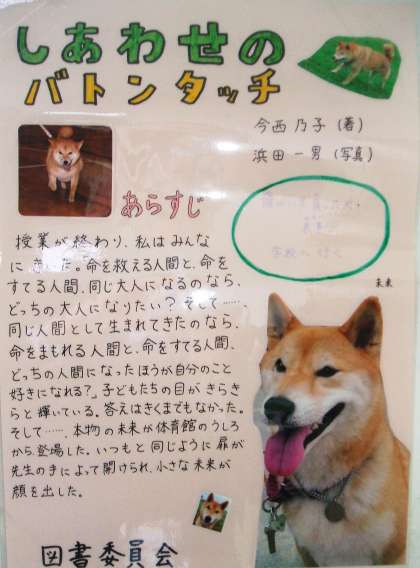 しあわせの
バトンタッチ
今西乃子(著)
浜田一男(写真)
あらすじ
学校へ行く
未来
授業が終わり、私はみんな
に、きいた。命を救える人間と、命を
すてる人間、同じ大人になるのなら、
どっちの大人になりたい?そして……
同じ人間として生まれてきたのなら、
命をまもれる人間と、命をすてる人間、
どっちの人間になったほうが自分のこと
好きになれる?」子どもたちの目がきらき
らと輝いている。答えはきくまでもなかった。
そして……本物の未来が体育館のうしろ
から登場した。いつもと同じように扉が
先生の手によって開けられ、小さな未来が
顔を出した。
図書委員会